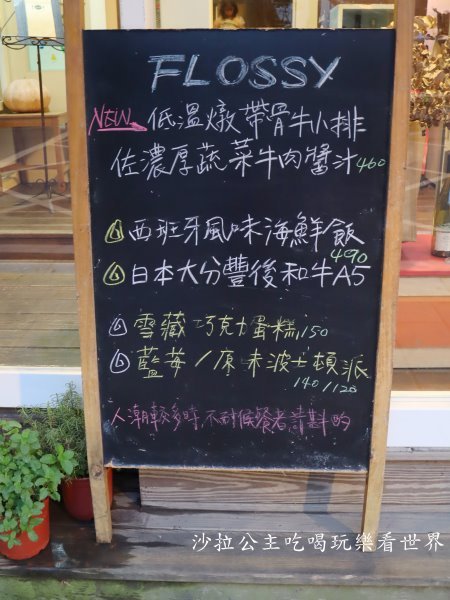 FLOSSY
NEW 低溫燉帶骨牛小排
佐濃厚蔬菜牛肉醬汁460
西班牙風味海鮮飯
490
日本大分豐後和牛A5
雪藏巧克力蛋糕150
藍莓/原味波士頓派
140/120
人潮較多時不耐候餐者請斟酌
沙拉公主吃喝玩樂看世界